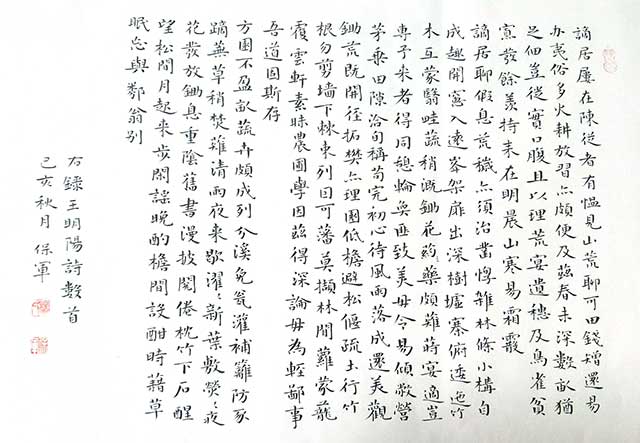 謫居屢在陳從者有愠見山荒聊可田錢鎛還易
办夷俗多火耕放習亦頗便及兹春未深數畝猶
足佃豈從實口腹且以理荒宴遺穗及鳥雀貧
寡發餘羨持耒在明晨山寒易霜霰
謫居聊假息荒穢亦須治鑿巘雉林條小構自
成趣開窗入遠峯架扉出深樹墟寨俯逶迤竹
木互蒙翳畦蔬稍溉鋤花葯頗雜蒔宴適豈
專予來者得同憩輪奐匪致美毋令易傾敝營
茅乘田隙洽旬稱苟完初心待風雨落成還美觀
鋤荒既開徑拓樊亦理園低檐避松偃疏土行竹
根勿剪墻下棘束列因可藩莫擷林間蘿蒙蘢
覆雲軒素昧農圃學因兹得深論毋為輕鄙事
吾道固斯存
方園不盈畝蔬卉頗成列分溪免甕灌補籬防豕
蹢蕪草稍焚薙清雨夜來歇濯濯新葉敷熒熒夜
花發放鋤息重陰舊書漫披閱倦枕竹下石醒
望松間月起來步閑謡晚酌檐間設酣時藉草
眠忘與鄰翁別
右録王明陽詩數首
己亥秋月 保軍